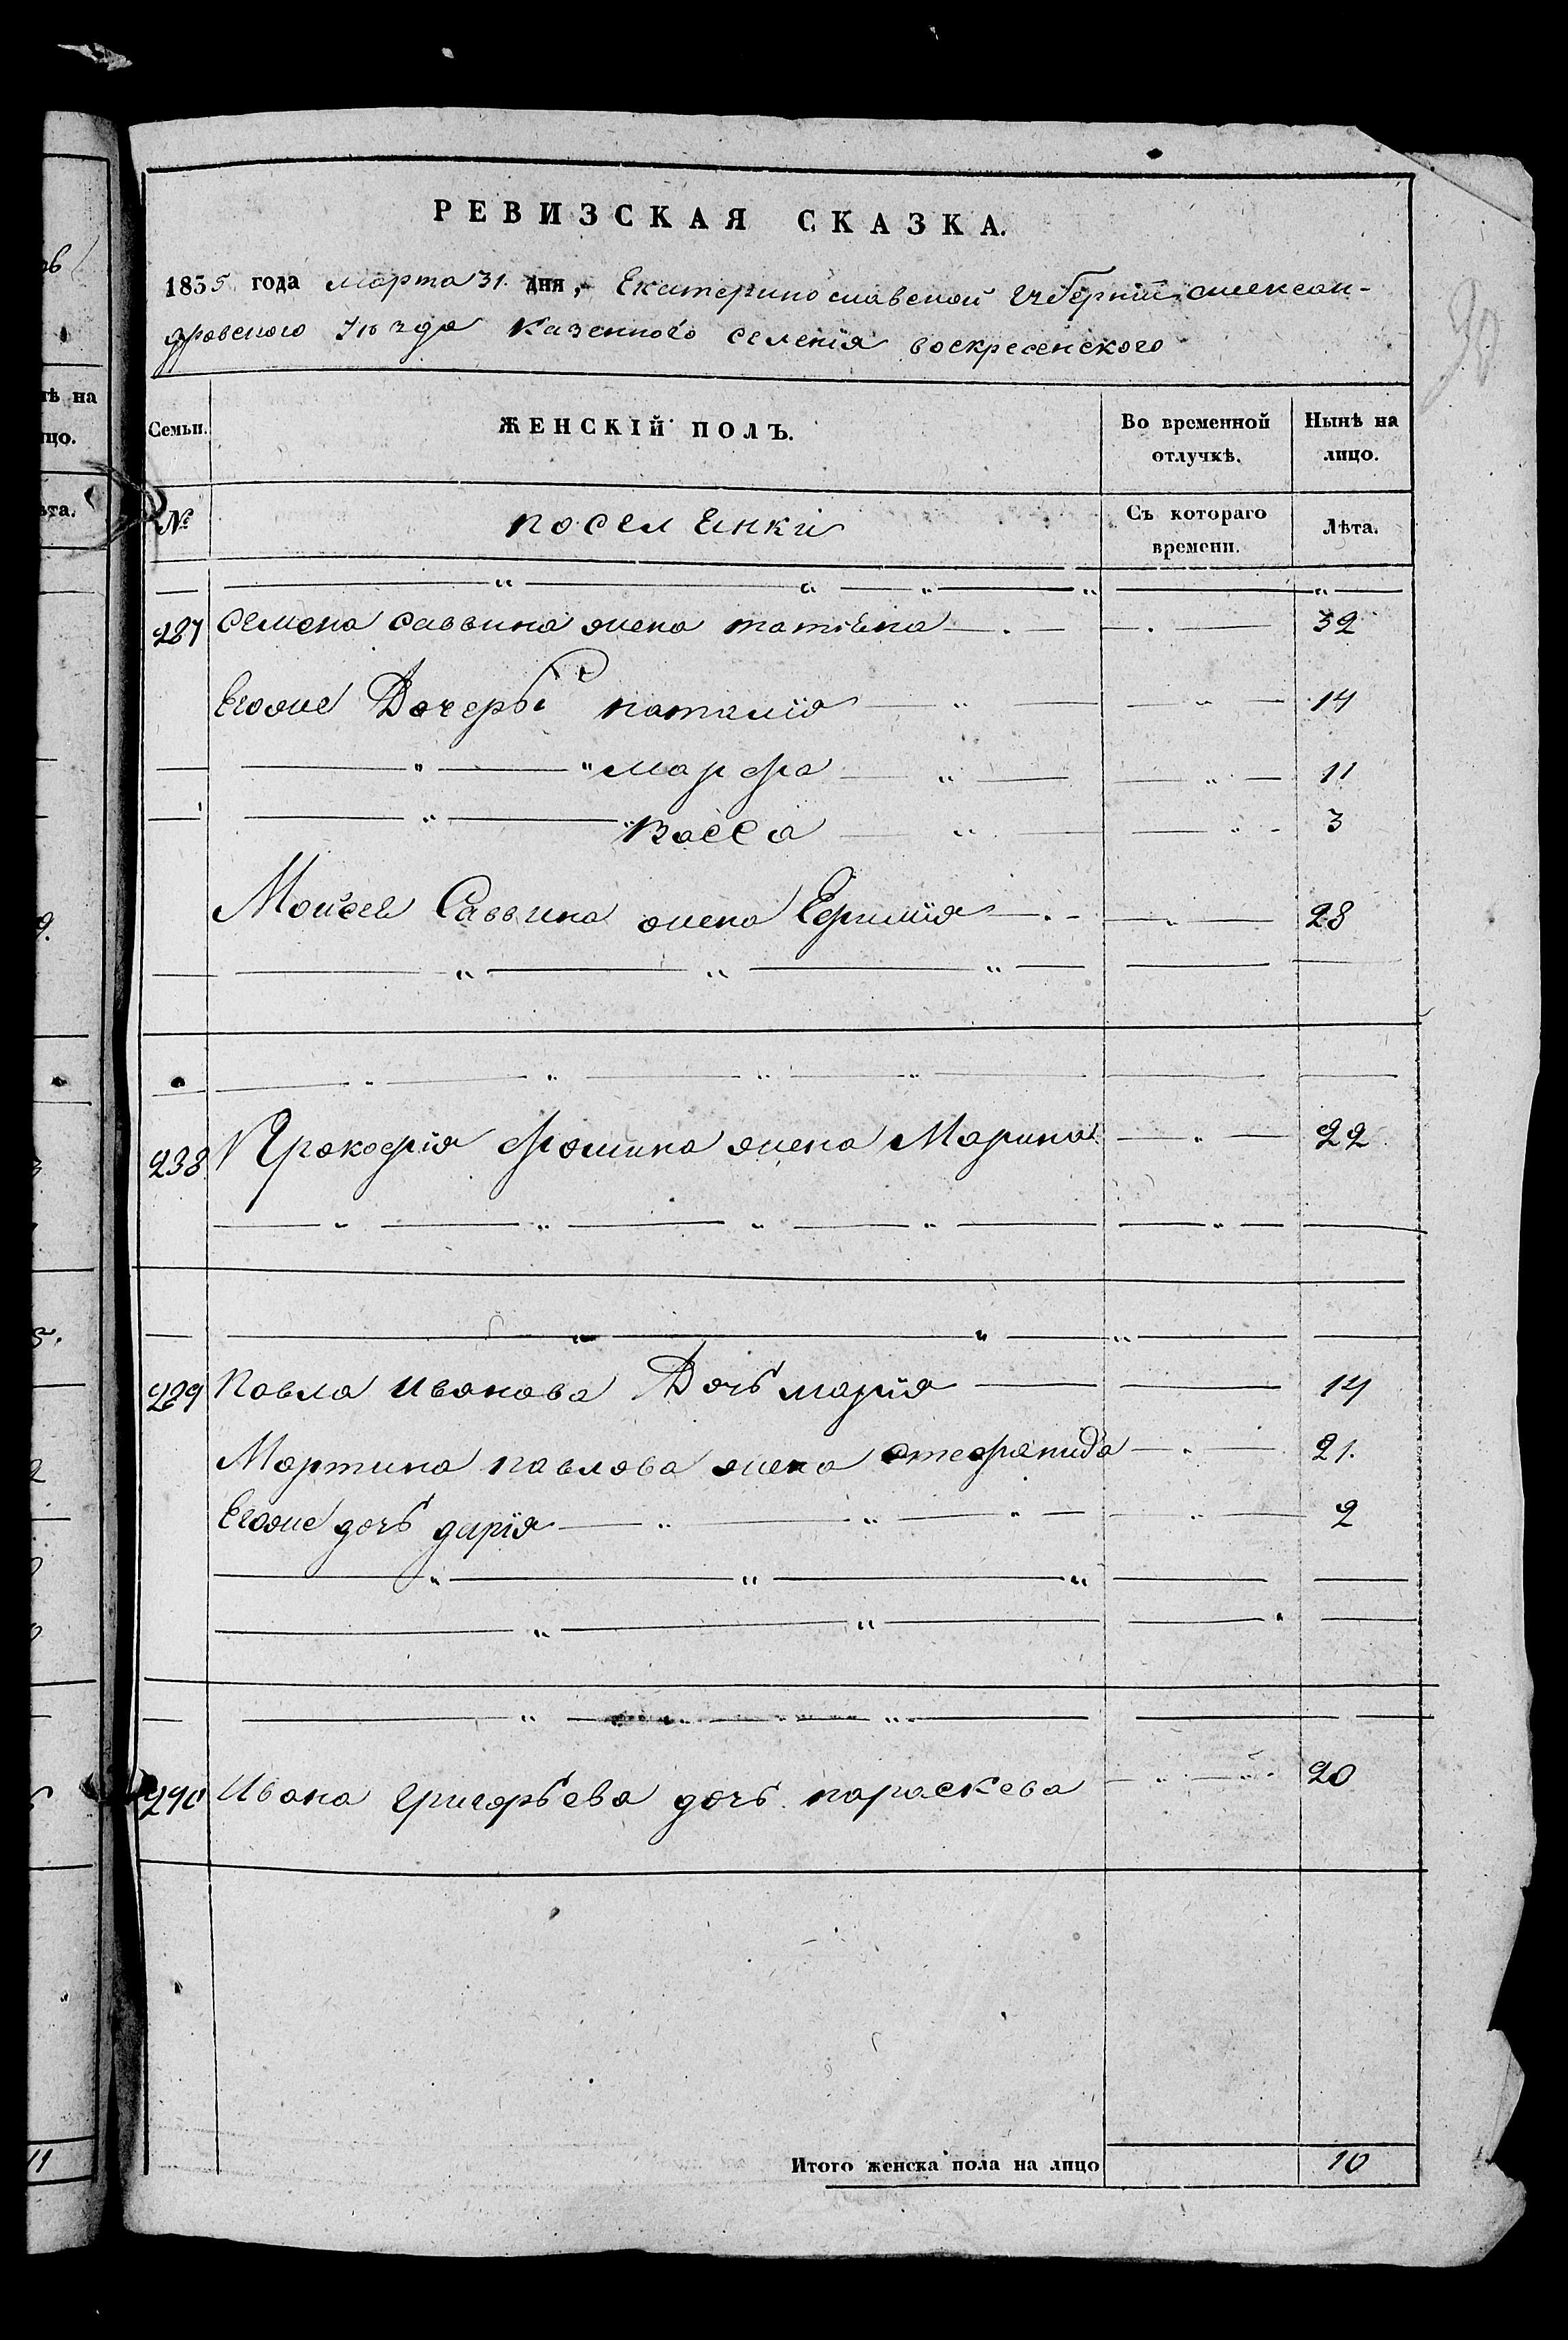 РЕВИЗСКАЯ СКАЗКА.
1835 года марта 31. дня, Екатеринославской Губернии Александровского Уезда Казенного селения воскресенского
Семьи. ЖЕНСКІЙ ПОЛЪ. Во временной отлучкѣ. Нынѣ на лицо.
№ поселенки Съ котораго времени. Лѣта.
287 Семена саввина жена татіена 32
Егоже Дочеръі наталія 14
марфа 11
васса 3
Моисея Саввина жена Ефимія 28
238 Прокофія Фомина жена Марина 22
229 Павла иванова Дочь марія 14
Мартина павлова жена стефанида 21.
Егоже дочь дарія 2
290 Ивана григорьева дочь параскева 20
Итого женска пола на лицо 10